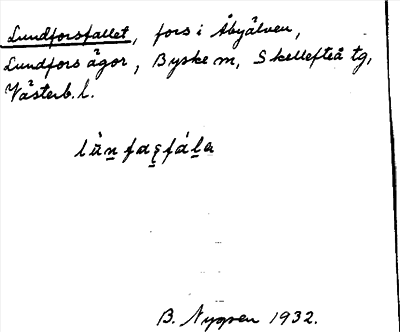 Lundforsfallet, fors i Åbyälven,
Lundfors ägor, Byske m, Skellefteå tg,
Västerb. l.
B. Nygren 1932.